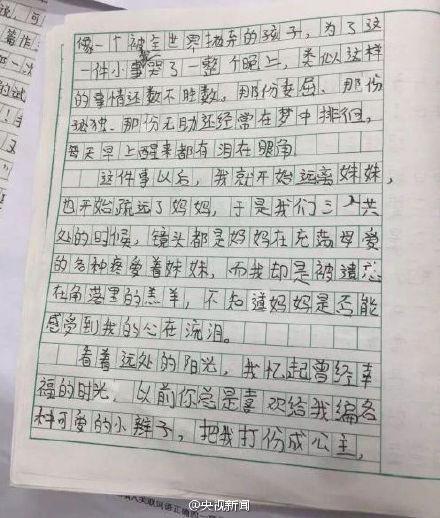 像一个被全世界抛弃的孩子,为了这
一件小事哭了一整个晚上,类似这样
的事情还数不胜数。那份委屈、那份
孤独、那份无助还经常在梦中排徊。
每天早上醒来都有泪在眼角。
这件事以后,我就开始远离妹妹,
也开始疏远了妈妈,于是我们三人共
处的时候,镜头都是妈妈在充满母爱
的各种疼爱着妹妹,而我却是被遗忘
在角落里的羔羊,不知道妈妈是否能
感受到我的心在流泪。
看着远处的阳光,我忆起曾经幸
福的时光,以前你总是喜欢给我编各
种可爱的小辫子,把我打份成公主,
@央视新闻